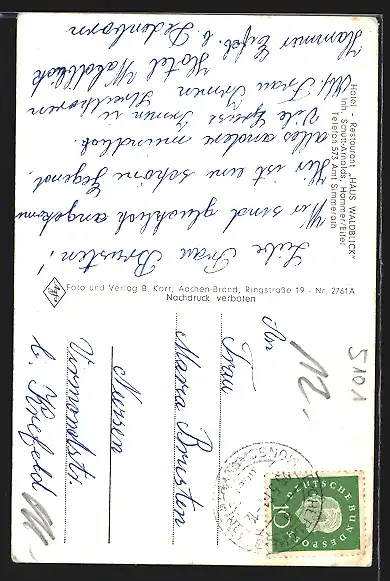 Hotel - Restaurant „HAUS WALDBLICK"
Inh. Schutt-Arnolds, Hammer/Eifel
Telefon 573 Amt Simmerath
Liebe Frau Brusten!
Wir sind glücklich angekommen
Hier ist eine schöne Gegend,
alles andere mündlich
Viele Grüsse
Frau
Hotel Waldblick
Hammer Eifel b. Dedenborn
Foto und Verlag B. Korr, Aachen-Brand, Ringstraße 19 - Nr. 2761A
Nachdruck verboten
Agfa
An
Frau
Maria Brusten
b. Krefeld
12.-
5101
DEUTSCHE BUNDESPOST
10